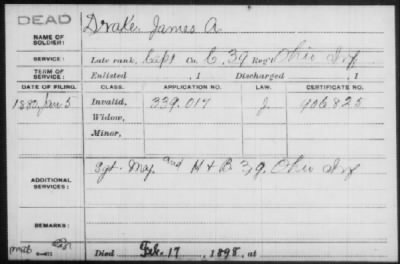 DEAD
Drake, James A
NAME OF SOLDIER:
SERVICE: Late rank, Capt Co. C, 39 Reg't Ohio Inf
TERM OF SERVICE: Enlisted , 1 Discharged , 1
DATE OF FILING. CLASS. APPLICATION NO. LAW. CERTIFICATE NO.
1882, Jan 5 Invalid, 339.017 J. 906825
Widow,
Minor,
ADDITIONAL SERVICES: Sgt. Maj. and H & B 39. Ohio Inf
REMARKS:
Died Feb. 17, 1898, at